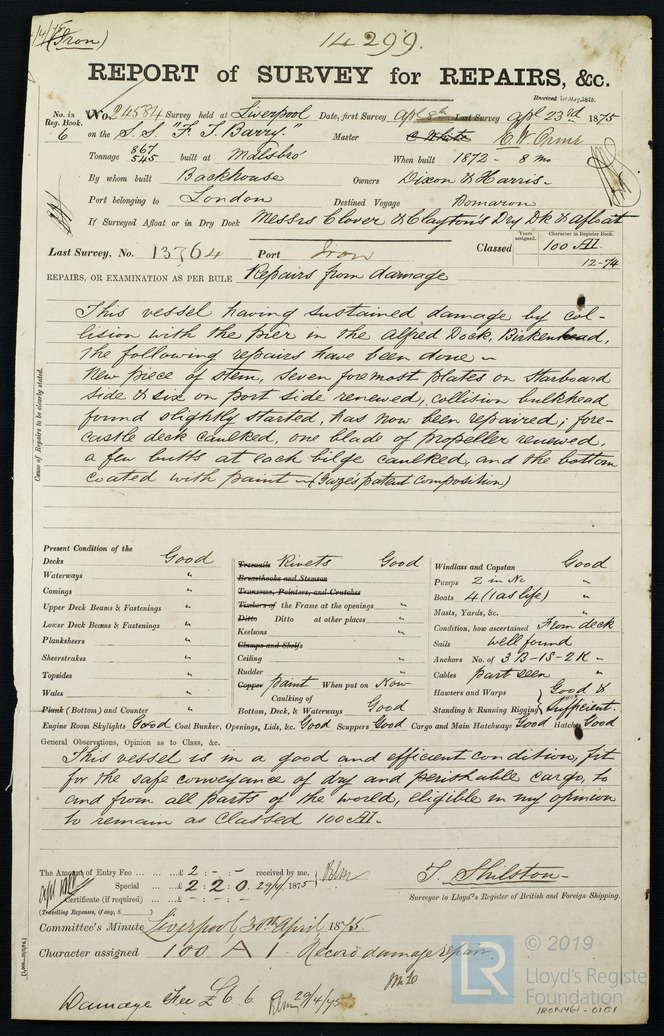 (Iron)
14299.
REPORT of SURVEY for REPAIRS, &c.
Received 1st May, 1875.
No. in Reg. Book. 6
No. 24584 Survey held at Liverpool Date, first Survey Apl 8th Last Survey Apl 23rd 1875
on the S.S. "F. T. Barry." Master C. W. Orme
Tonnage 867 545 built at Midlesbro' When built 1872 - 8 mo
By whom built Backhouse Owners Dixon & Harris -
Port belonging to London Destined Voyage
If Surveyed Afloat or in Dry Dock Messrs Clover & Clayton's Dry Dk & afloat
Last Survey, No. 13764 Port Iron Classed
Years assigned. Character in Register Book.
100 A1
12-74
REPAIRS, OR EXAMINATION AS PER RULE Repairs from damage
Cause of Repairs to be clearly stated.
This vessel having sustained damage by col-
lision with the pier in the Alfred Dock, Birkenhead,
the following repairs have been done -
New piece of stem, seven foremost plates on Starboard
side & six on port side renewed, collision bulkhead
found slightly started, has now been repaired, fore-
castle deck caulked, one blade of propeller renewed,
a few butts at each bilge caulked, and the bottom
coated with paint - ( patent composition)
Present Condition of the
Decks Good
Waterways "
Comings "
Upper Deck Beams & Fastenings "
Lower Deck Beams & Fastenings "
Planksheers "
Sheerstrakes "
Topsides "
Wales "
Plank (Bottom) and Counter "
Treenails Rivets Good
Breasthooks and Stemson
Transoms, Pointers, and Crutches
Timbers of the Frame at the openings "
Ditto Ditto at other places "
Keelsons "
Clamps and Shelfs
Ceiling "
Rudder "
Copper paint When put on Now
Caulking of Bottom, Deck, & Waterways Good
Windlass and Capstan Good
Pumps 2 in No "
Boats 4 (1 as life) "
Masts, Yards, &c. "
Condition, how ascertained From deck
Sails well found
Anchors No. of 3 B - 1 S - 2 K "
Cables part seen "
Hawsers and Warps Good &
Standing & Running Rigging Sufficient
Engine Room Skylights Good Coal Bunker, Openings, Lids, &c. Good Scuppers Good Cargo and Main Hatchways Good Hatches Good
General Observations, Opinion as to Class, &c.
This vessel is in a good and efficient condition, fit
for the safe conveyance of dry and perishable cargo, to
and from all parts of the world, eligible in my opinion
to remain as Classed 100 A1 -
The Amount of Entry Fee ... ... £ 2 : - : - received by me,
Special ... ... £ 2 : 2 : 0. 29/4/1875
Certificate (if required) ... £ : :
(Travelling Expenses, if any, £ )
T. Shilston -
Surveyor to Lloyd's Register of British and Foreign Shipping.
Committee's Minute Liverpool, 30th April 1875.
Character assigned 100 A 1. Record damage repair.
Damage Fee £6.6. 29/4/75
© 2019
LR
Lloyd's Register
Foundation
IRON461-0151